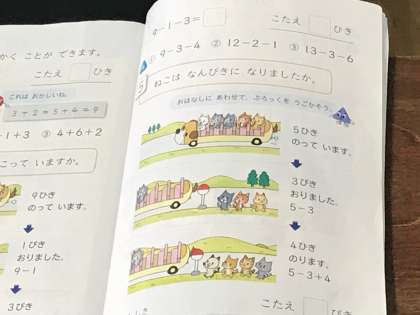 かく ことが できます。
こたえ ひき
これは おかしいね。
3+2=5+4=9
-1+3 ③ 4+6+2
こって いますか。
9ひき
のって います。
1ぴき
おりました。
9-1
3びき
9-1-3= こたえ ひき
① 9-3-4 ② 12-2-1 ③ 13-3-6
ねこは なんびきに なりましたか。
おはなしに あわせて、ぶろっくを うごかそう。
5ひき
のって います。
3びき
おりました。
5-3
4ひき
のります。
5-3+4
こたえ ひき